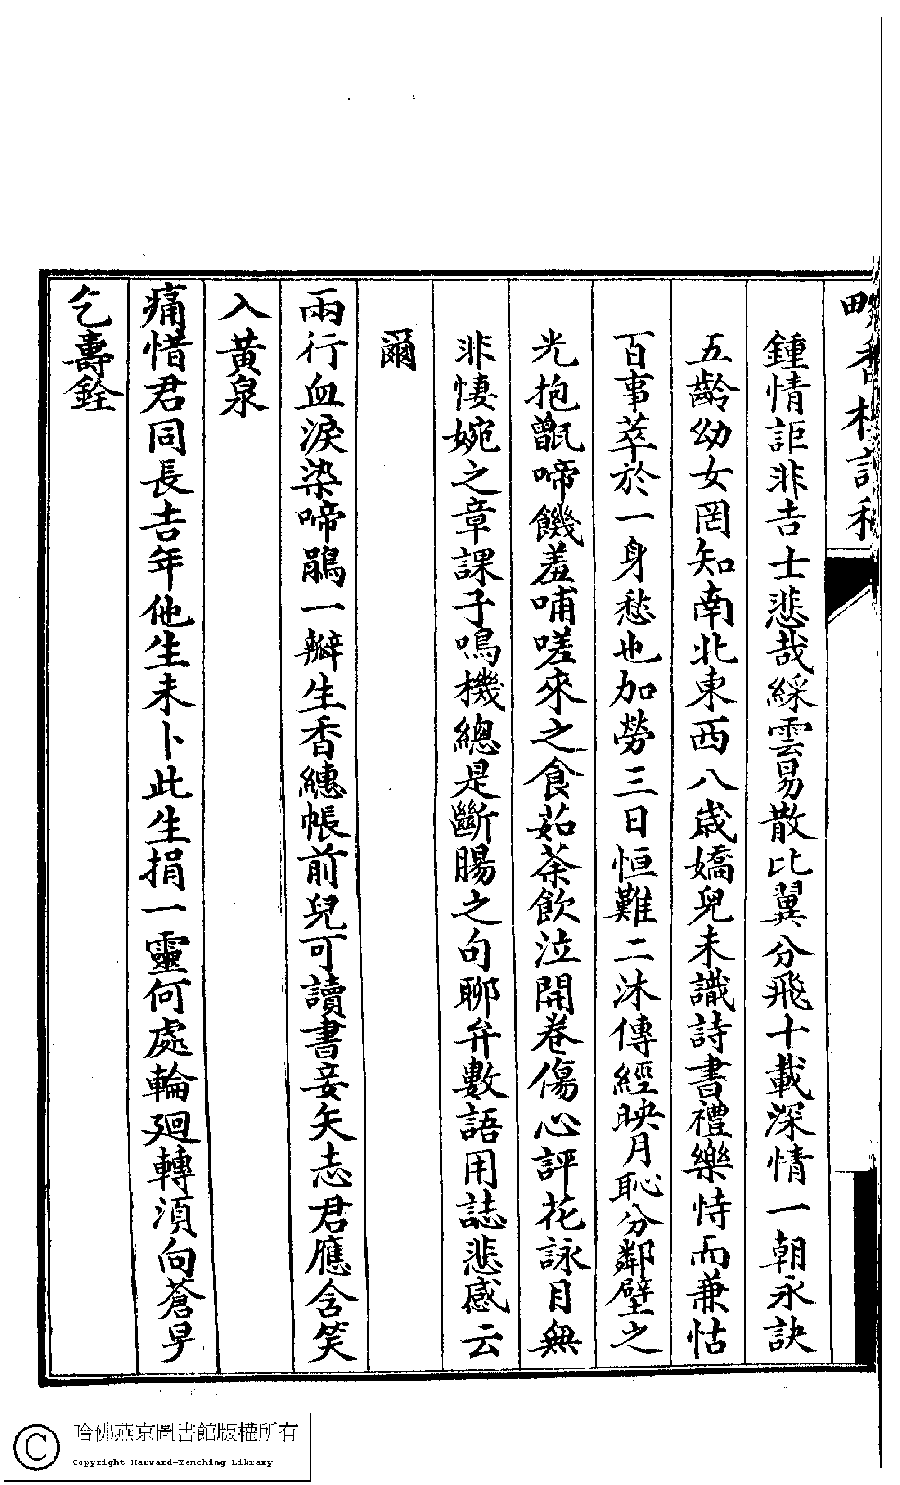 鍾情詎非吉士悲哉綵雲易散比翼分飛十載深情一朝永訣
五齡幼女罔知南北東西八歲嬌兒未識詩書禮樂恃而兼怙
百事萃於一身愁也加勞三日恒難二沐傳經映月恥分鄰壁之
光抱甑啼饑羞哺嗟來之食茹荼飲泣開卷傷心評花詠月無
非悽婉之章課子鳴機總是斷腸之句聊弁數語用誌悲感云
爾
兩行血淚染啼鵑一瓣生香繐帳前兒可讀書妾矢志君應含笑
入黃泉
痛惜君同長吉年他生未卜此生捐一靈何處輪迴轉須向蒼旻
乞壽銓
哈佛燕京圖書館版權所有
Copyright Harvard-Yenching Library